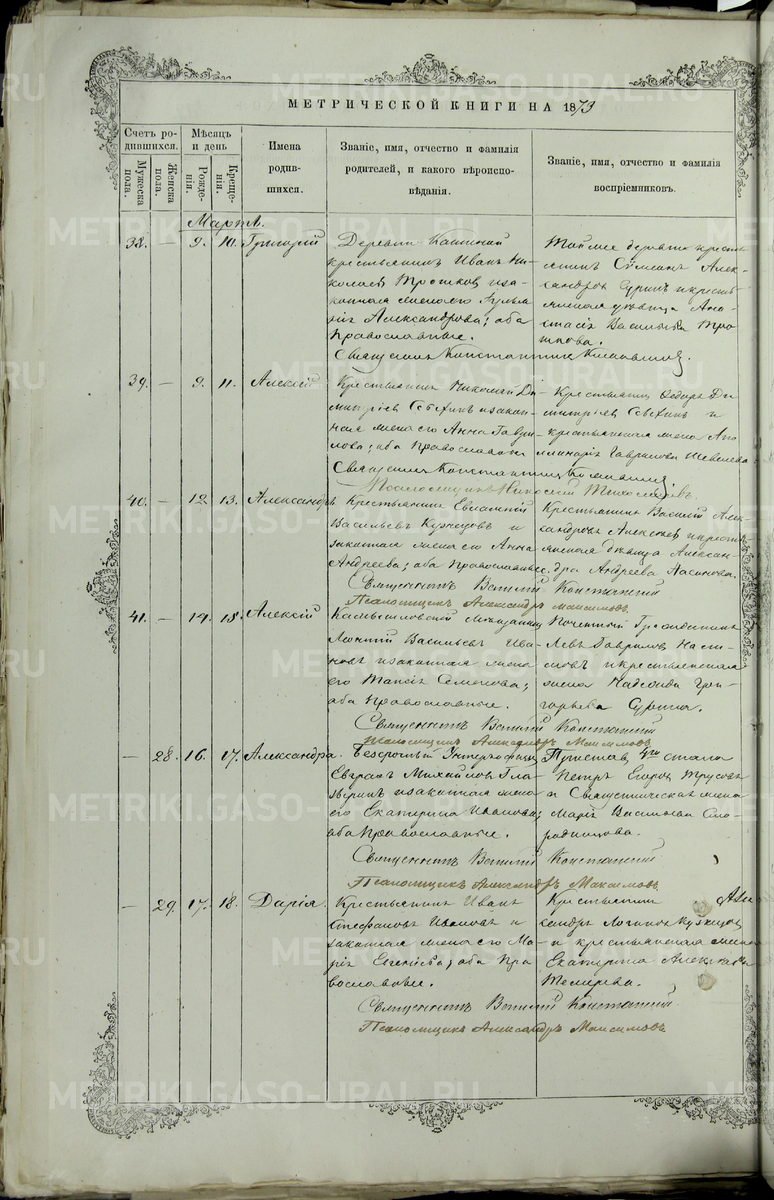 МЕТРИЧЕСКОЙ КНИГИ НА 1873
Счетъ ро-
дившихся.
Мужеска
пола.
Женска
пола.
Мѣсяцъ
и день
Рожде-
нія.
Креще-
нія.
Имена
родив-
шихся.
Званіе, имя, отчество и фамилія
родителей, и какого вѣроиспо-
вѣданія.
Званіе, имя, отчество и фамилія
воспріемниковъ.
Марта.
38. — 9. 10. Григорій
Деревни
крестьянинъ Иванъ Ни-
колаевъ и за-
конная жена его
Александрова; оба
Православные.
Той же деревни кресть-
янинъ Алек-
сандровъ и кресть-
Ана-
стасія Васильева
Священникъ Константинъ
39. — 9. 11. Алексій
Крестьянинъ Николай Ди-
митріевъ и закон-
ная жена его Анна Гаври-
лова; оба Православные
Крестьянинъ Ѳедоръ Ди-
митріевъ и
крестьянская жена Апо-
линарія Гаврилова
Священникъ Константинъ
Николай
40. — 12. 13. Александръ
Крестьянинъ Евгеній
Васильевъ Кузнецовъ и
законная жена его Анна
Андреева; оба Православные.
Крестьянинъ Василій Алек-
сандровъ Алексѣевъ и крест-
дѣвица Алексан-
дра Андреева
Священникъ Василій Констанскій
Псаломщикъ Александръ Максимовъ
41. — 14. 15. Алексій
Камышловскій мѣщанинъ
Васильевъ Ива-
новъ и законная жена
его Таисія Семенова;
оба Православные.
Почетный Гражданинъ
Левъ Гавриловъ
и крестьянская
жена Надежда Гри-
горьева
Священникъ Василій Констанскій
Псаломщикъ Александръ Максимовъ
— 28. 16. 17. Александра.
Безсрочный Унтеръ-офицеръ
Евграфъ Михайловъ Гла-
зыринъ и законная жена
его Екатерина Иванова;
оба Православные.
Приставъ стана
Петръ Егоровъ Трусовъ
и Священническая жена
Марія Васильева Смо-
родинцова.
Священникъ Василій Констанскій
Псаломщикъ Александръ Максимовъ
— 29. 17. 18. Дарія.
Крестьянинъ Иванъ
Стефановъ Ивановъ и
законная жена его Ма-
рія оба Пра-
вославные.
Крестьянинъ Алек-
сандръ Логиновъ Кузнецовъ
и крестьянская жена
Екатерина Алексѣева
Священникъ Василій Констанскій
Псаломщикъ Александръ Максимовъ
METRIKI.GASO-URAL.RU